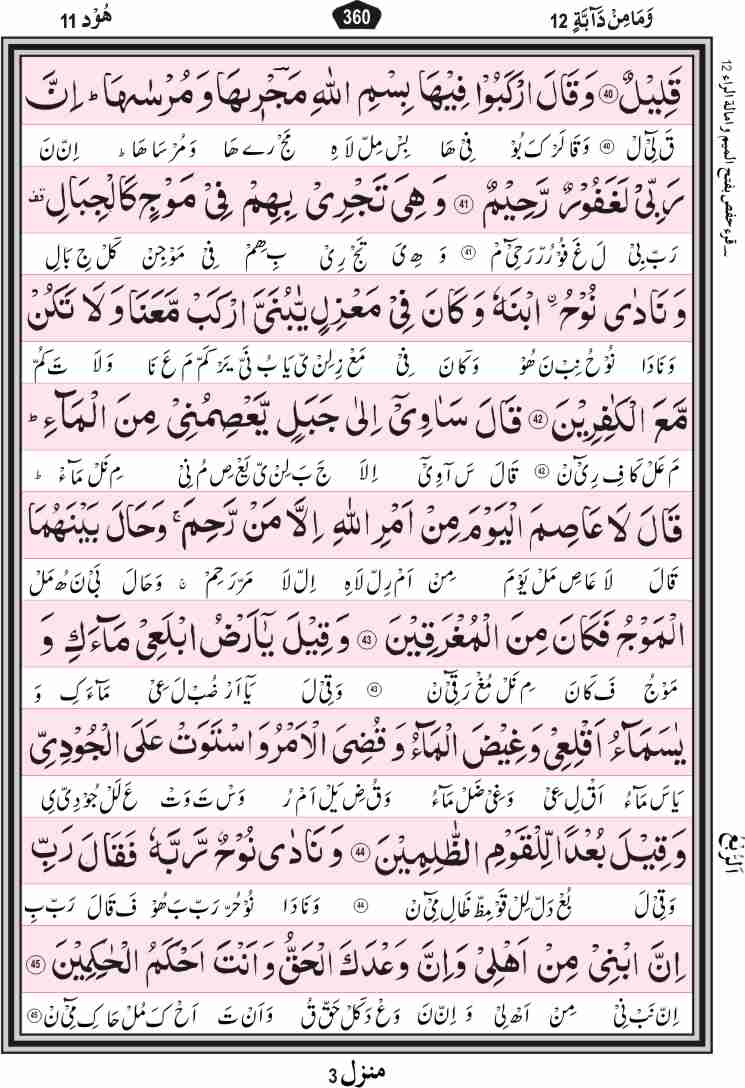 وَمَا مِنْ دَآبَّةٍ 12
360
هُوْد 11
قَلِيْلٌ ﴿40﴾ وَقَالَ ارْكَبُوْا فِيْهَا بِسْمِ اللّٰهِ مَجْرٖىهَا وَ مُرْسٰىهَا ؕ اِنَّ
قَ لِیْٓ لْ ﴿40﴾ وَ قَا لَرْ كَ بُوْ فِیْ هَا بِسْ مِلْ لَا هِ مَجْ رے هَا وَ مُرْ سَا هَا ؕ اِنْ نَ
رَبِّيْ لَغَفُوْرٌ رَّحِيْمٌ ﴿41﴾ وَ هِيَ تَجْرِيْ بِهِمْ فِيْ مَوْجٍ كَالْجِبَالِ قف
رَبْ بِیْ لَ غَ فُوْ رُرْ رَحِیْٓ مْ ﴿41﴾ وَ هِ یَ تَجْ رِیْ بِ هِمْ فِیْ مَوْ جِنْ كَلْ جِ بَالِ
وَ نَادٰى نُوْحُ ۨ ابْنَهٗ وَ كَانَ فِيْ مَعْزِلٍ يّٰبُنَيَّ ارْكَبْ مَّعَنَا وَ لَا تَكُنْ
وَ نَادَا نُوْ حُ نِبْ نَ هُوْ وَ كَانَ فِیْ مَعْ زِ لِنْ یْ يَا بُ نَیْ يَرْ كَمْ مَ عَ نَا وَ لَا تَ كُمْ
مَّعَ الْكٰفِرِيْنَ ﴿42﴾ قَالَ سَاٰوِيْٓ اِلٰى جَبَلٍ يَّعْصِمُنِيْ مِنَ الْمَآءِ ؕ
مَ عَلْ كَا فِ رِیْٓ نْ ﴿42﴾ قَالَ سَ آوِیْٓ اِلَا جَ بَ لِنْ یْ يَعْ صِ مُ نِیْ مِ نَلْ مَآءْ ؕ
قَالَ لَا عَاصِمَ الْيَوْمَ مِنْ اَمْرِ اللّٰهِ اِلَّا مَنْ رَّحِمَ ۚ وَحَالَ بَيْنَهُمَا
قَالَ لَا عَا صِ مَلْ يَوْمَ مِنْ اَمْ رِلْ لَاهِ اِلْ لَا مَرْ رَحِمْ ۚ وَ حَالَ بَیْ نَ هُ مَلْ
الْمَوْجُ فَكَانَ مِنَ الْمُغْرَقِيْنَ ﴿43﴾ وَ قِيْلَ يٰٓاَرْضُ ابْلَعِيْ مَآءَكِ وَ
مَوْجُ فَ كَانَ مِ نَلْ مُغْ رَ قِیْٓ نْ ﴿43﴾ وَ قِیْ لَ يَآ اَرْ ضُبْ لَ عِیْ مَآءَ كِ وَ
يٰسَمَآءُ اَقْلِعِيْ وَ غِيْضَ الْمَآءُ وَ قُضِيَ الْاَمْرُ وَ اسْتَوَتْ عَلَى الْجُوْدِيِّ
يَا سَ مَآءُ اَقْ لِ عِیْ وَ غِیْ ضَلْ مَآءُ وَ قُ ضِ يَلْ اَمْ رُ وَسْ تَ وَتْ عَ لَلْ جُوْ دِیْ يِ
وَ قِيْلَ بُعْدًا لِّلْقَوْمِ الظّٰلِمِيْنَ ﴿44﴾ وَ نَادٰى نُوْحٌ رَّبَّهٗ فَقَالَ رَبِّ
وَ قِیْ لَ بُعْ دَلْ لِلْ قَوْ مِظْ ظَا لِ مِیْٓ نْ ﴿44﴾ وَ نَادَا نُوْ حُرْ رَبْ بَ هُوْ فَ قَالَ رَبْ بِ
اِنَّ ابْنِيْ مِنْ اَهْلِيْ وَ اِنَّ وَعْدَكَ الْحَقُّ وَ اَنْتَ اَحْكَمُ الْحٰكِمِيْنَ ﴿45﴾
اِنْ نَبْ نِیْ مِنْ اَهْ لِیْ وَ اِنْ نَ وَعْ دَ كَلْ حَقْ قُ وَ اَنْ تَ اَحْ كَ مُلْ حَا كِ مِیْٓ نْ ﴿45﴾
قرء حفص بفتح الميم و امالة الراء 12
اَلرُّبُع
منزل 3